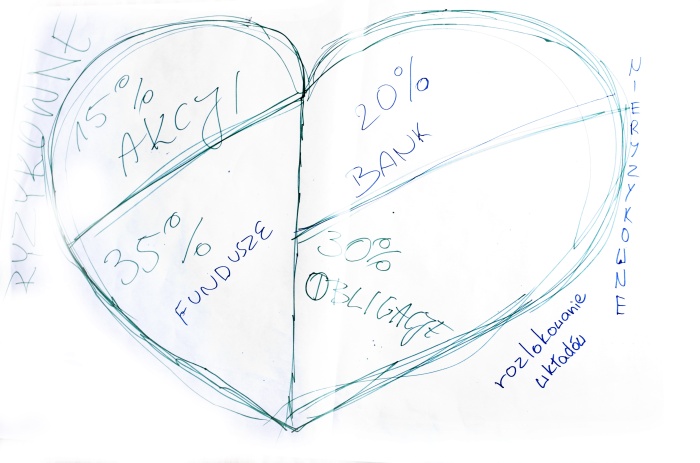 RYZYKOWNE
15%
AKCJI
20%
BANK
NIERYZYKOWNE
35%
FUNDUSZE
30%
OBLIGACJE
rozlokowanie
układów